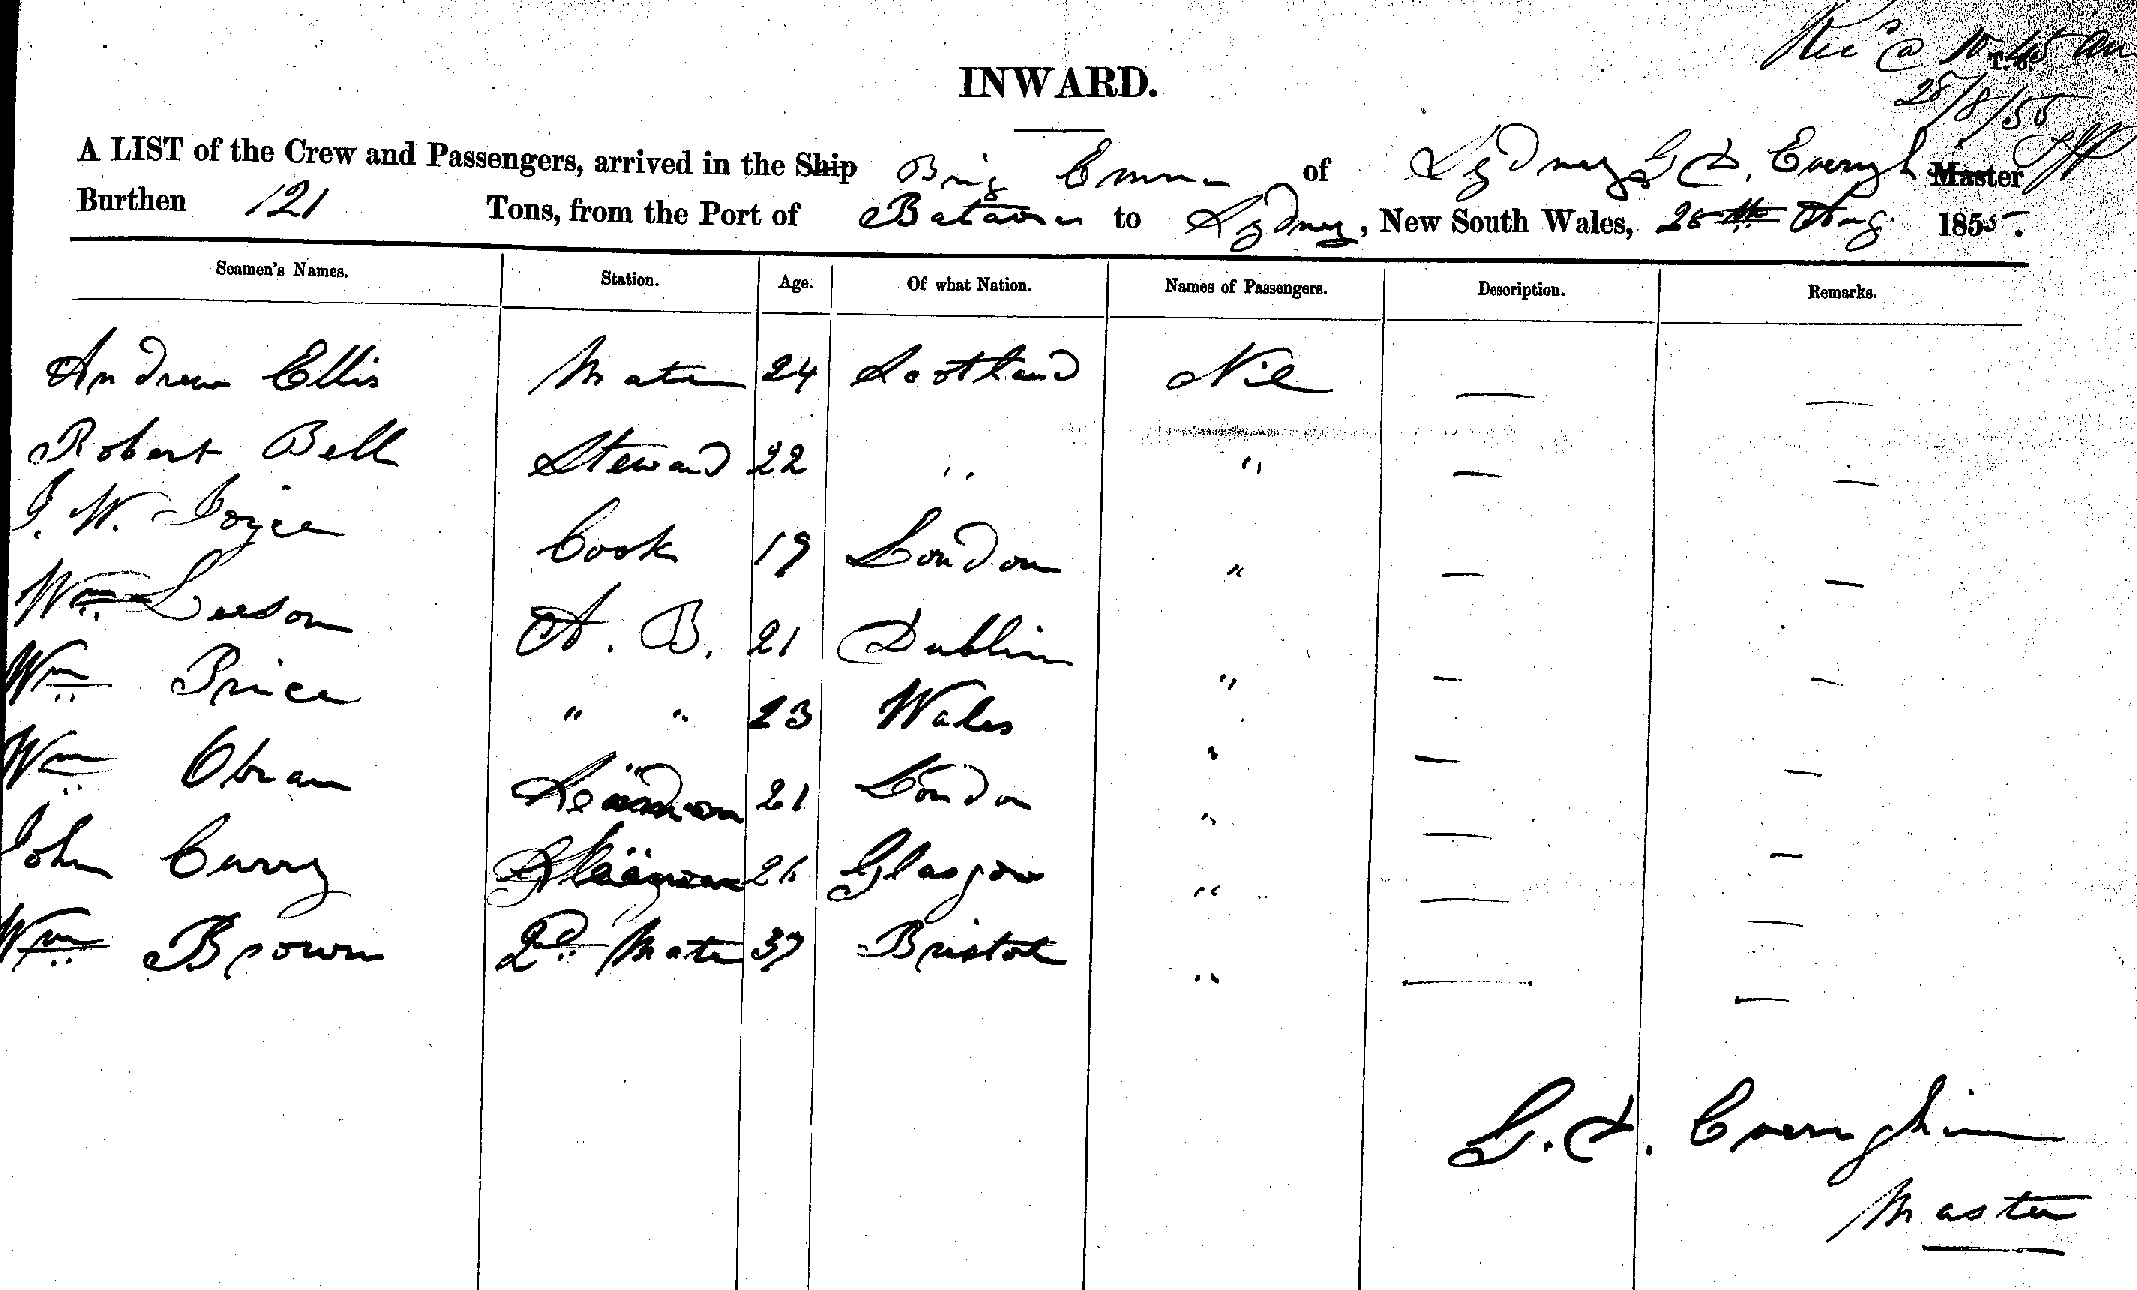 Rec'd @ 10.45 am
28/8/55
INWARD.
A LIST of the Crew and Passengers, arrived in the Ship Brig Emma of Sydney G A. Master
Burthen 121 Tons, from the Port of Batavia to Sydney, New South Wales, 28th Aug 1855.
Seamen's Names. Station. Age. Of what Nation. Names of Passengers. Description. Remarks.
Andrew Ellis Mate 24 Scotland Nil — —
Robert Bell Steward 22 " " — —
J. W. Joyce Cook 19 London " — —
Wm Leeson A. B. 21 Dublin " — —
Wm Price " " 23 Wales " — —
Wm Obran 21 London " — —
John Curry 26 Glasgow " — —
Wm Brown 2d Mate 37 Bristol " — —
G. A.
Master